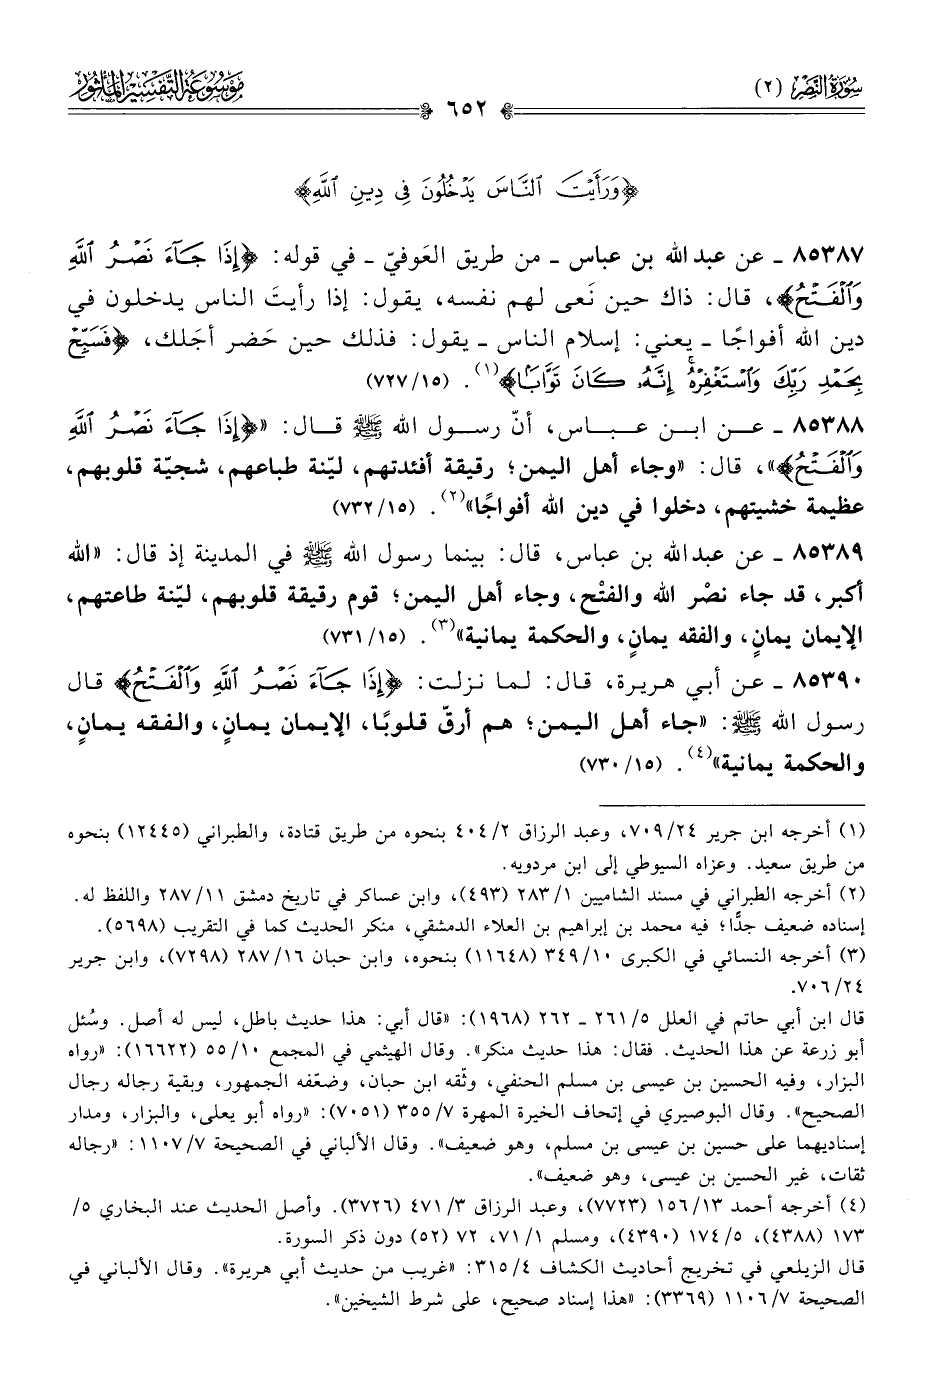 سورة النصر (٢)
موسوعة التفسير المأثور
٦٥٢
﴿وَرَأَيْتَ ٱلنَّاسَ يَدْخُلُونَ فِى دِينِ ٱللَّهِ﴾
٨٥٣٨٧ ـ عن عبد الله بن عباس ـ من طريق العَوفيّ ـ في قوله: ﴿إِذَا جَآءَ نَصْرُ ٱللَّهِ
وَٱلْفَتْحُ﴾، قال: ذاك حين نَعى لهم نفسه، يقول: إذا رأيتَ الناس يدخلون في
دين الله أفواجًا ـ يعني: إسلام الناس ـ يقول: فذلك حين حَضر أجَلك، ﴿فَسَبِّحْ
بِحَمْدِ رَبِّكَ وَٱسْتَغْفِرْهُ إِنَّهُۥ كَانَ تَوَّابًۢا﴾(١). (١٥/ ٧٢٧)
٨٥٣٨٨ ـ عن ابن عباس، أنّ رسول الله ﷺ قال: «﴿إِذَا جَآءَ نَصْرُ ٱللَّهِ
وَٱلْفَتْحُ﴾»، قال: «وجاء أهل اليمن؛ رقيقة أفئدتهم، ليّنة طباعهم، شجيّة قلوبهم،
عظيمة خشيتهم، دخلوا في دين الله أفواجًا»(٢). (١٥/ ٧٣٢)
٨٥٣٨٩ ـ عن عبد الله بن عباس، قال: بينما رسول الله ﷺ في المدينة إذ قال: «الله
أكبر، قد جاء نصْر الله والفتْح، وجاء أهل اليمن؛ قوم رقيقة قلوبهم، ليّنة طاعتهم،
الإيمان يمانٍ، والفقه يمانٍ، والحكمة يمانية»(٣). (١٥/ ٧٣١)
٨٥٣٩٠ ـ عن أبي هريرة، قال: لما نزلت: ﴿إِذَا جَآءَ نَصْرُ ٱللَّهِ وَٱلْفَتْحُ﴾ قال
رسول الله ﷺ: «جاء أهل اليمن؛ هم أرقّ قلوبًا، الإيمان يمانٍ، والفقه يمانٍ،
والحكمة يمانية»(٤). (١٥/ ٧٣٠)
(١) أخرجه ابن جرير ٢٤/ ٧٠٩، وعبد الرزاق ٢/ ٤٠٤ بنحوه من طريق قتادة، والطبراني (١٢٤٤٥) بنحوه
من طريق سعيد. وعزاه السيوطي إلى ابن مردويه.
(٢) أخرجه الطبراني في مسند الشاميين ١/ ٢٨٣ (٤٩٣)، وابن عساكر في تاريخ دمشق ١١/ ٢٨٧ واللفظ له.
إسناده ضعيف جدًّا؛ فيه محمد بن إبراهيم بن العلاء الدمشقي، منكر الحديث كما في التقريب (٥٦٩٨).
(٣) أخرجه النسائي في الكبرى ١٠/ ٣٤٩ (١١٦٤٨) بنحوه، وابن حبان ١٦/ ٢٨٧ (٧٢٩٨)، وابن جرير
٢٤/ ٧٠٦.
قال ابن أبي حاتم في العلل ٥/ ٢٦١ ـ ٢٦٢ (١٩٦٨): «قال أبي: هذا حديث باطل، ليس له أصل. وسُئل
أبو زرعة عن هذا الحديث. فقال: هذا حديث منكر». وقال الهيثمي في المجمع ١٠/ ٥٥ (١٦٦٢٢): «رواه
البزار، وفيه الحسين بن عيسى بن مسلم الحنفي، وثّقه ابن حبان، وضعّفه الجمهور، وبقية رجاله رجال
الصحيح». وقال البوصيري في إتحاف الخيرة المهرة ٧/ ٣٥٥ (٧٠٥١): «رواه أبو يعلى، والبزار، ومدار
إسناديهما على حسين بن عيسى بن مسلم، وهو ضعيف». وقال الألباني في الصحيحة ٧/ ١١٠٧: «رجاله
ثقات، غير الحسين بن عيسى، وهو ضعيف».
(٤) أخرجه أحمد ١٣/ ١٥٦ (٧٧٢٣)، وعبد الرزاق ٣/ ٤٧١ (٣٧٢٦). وأصل الحديث عند البخاري ٥/
١٧٣ (٤٣٨٨)، ٥/ ١٧٤ (٤٣٩٠)، ومسلم ١/ ٧١، ٧٢ (٥٢) دون ذكر السورة.
قال الزيلعي في تخريج أحاديث الكشاف ٤/ ٣١٥: «غريب من حديث أبي هريرة». وقال الألباني في
الصحيحة ٧/ ١١٠٦ (٣٣٦٩): «هذا إسناد صحيح، على شرط الشيخين».